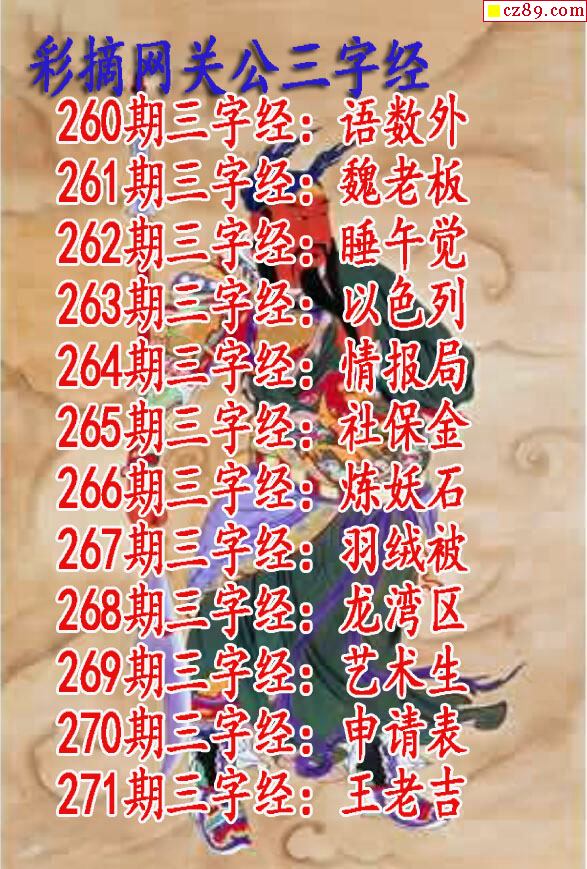 cz89.com
彩摘网关公三字经
260期三字经：语数外
261期三字经：魏老板
262期三字经：睡午觉
263期三字经：以色列
264期三字经：情报局
265期三字经：社保金
266期三字经：炼妖石
267期三字经：羽绒被
268期三字经：龙湾区
269期三字经：艺术生
270期三字经：申请表
271期三字经：王老吉